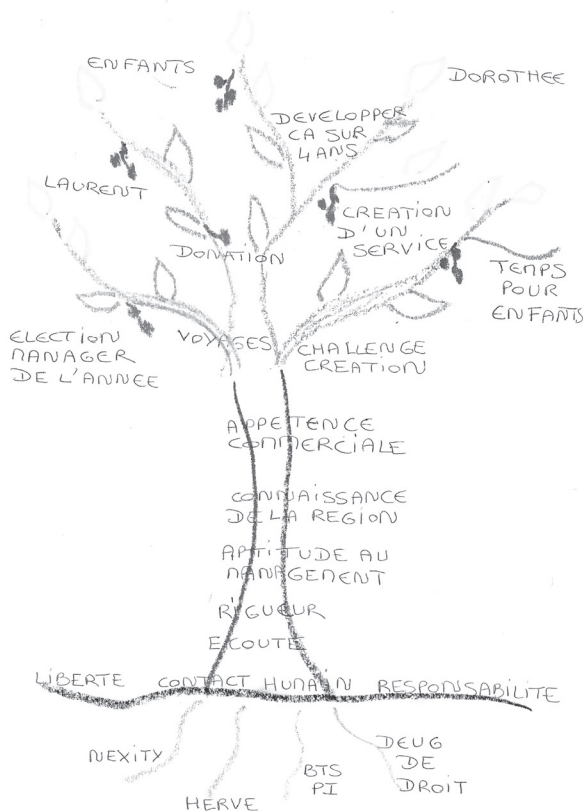 ENFANTS
DOROTHEE
DEVELOPPER
CA SUR
4 ANS
LAURENT
CREATION
D'UN
SERVICE
DONATION
TEMPS
POUR
ENFANTS
ELECTION
MANAGER
DE L'ANNEE
VOYAGES
CHALLENGE
CREATION
APPETENCE
COMMERCIALE
CONNAISSANCE
DE LA REGION
APTITUDE AU
MANAGEMENT
RIGUEUR
ECOUTE
LIBERTE CONTACT HUMAIN RESPONSABILITE
NEXITY
HERVE
BTS
PI
DEUG
DE
DROIT